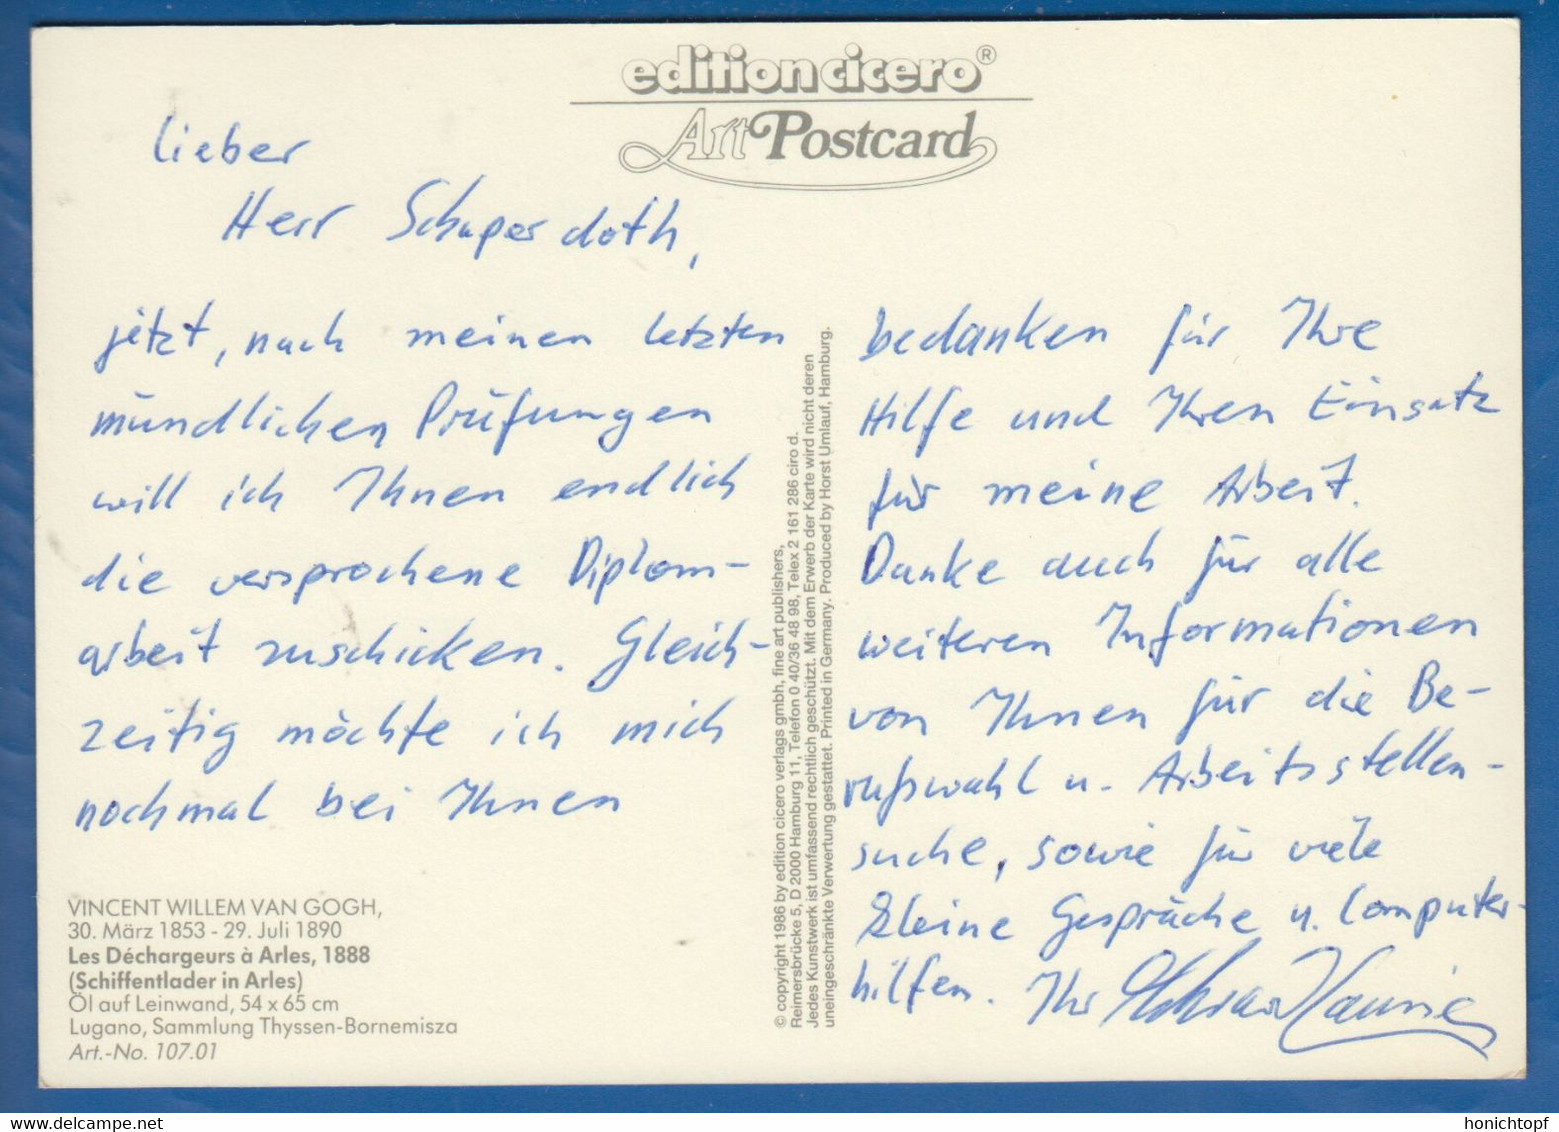 edition cicero®
Art Postcard
Lieber
Herr Schuperdoth,
jetzt, nach meinen letzten
mündlichen Prüfungen
will ich Ihnen endlich
die versprochene Diplom-
arbeit zuschicken. Gleich-
zeitig möchte ich mich
nochmal bei Ihnen
VINCENT WILLEM VAN GOGH,
30. März 1853 - 29. Juli 1890
Les Déchargeurs à Arles, 1888
(Schiffentlader in Arles)
Öl auf Leinwand, 54 x 65 cm
Lugano, Sammlung Thyssen-Bornemisza
Art.-No. 107.01
© copyright 1986 by edition cicero verlags gmbh, fine art publishers,
Reimersbrücke 5, D 2000 Hamburg 11, Telefon 0 40/36 48 98, Telex 2 161 286 ciro d.
Jedes Kunstwerk ist umfassend rechtlich geschützt. Mit dem Erwerb der Karte wird nicht deren
uneingeschränkte Verwertung gestattet. Printed in Germany. Produced by Horst Umlauf, Hamburg.
bedanken für Ihre
Hilfe und Ihren Einsatz
für meine Arbeit.
Danke auch für alle
weiteren Informationen
von Ihnen für die Be-
rufswahl u. Arbeitsstellen-
suche, sowie für viele
kleine Gespräche u. Computer-
hilfen. Ihr
honichtopf